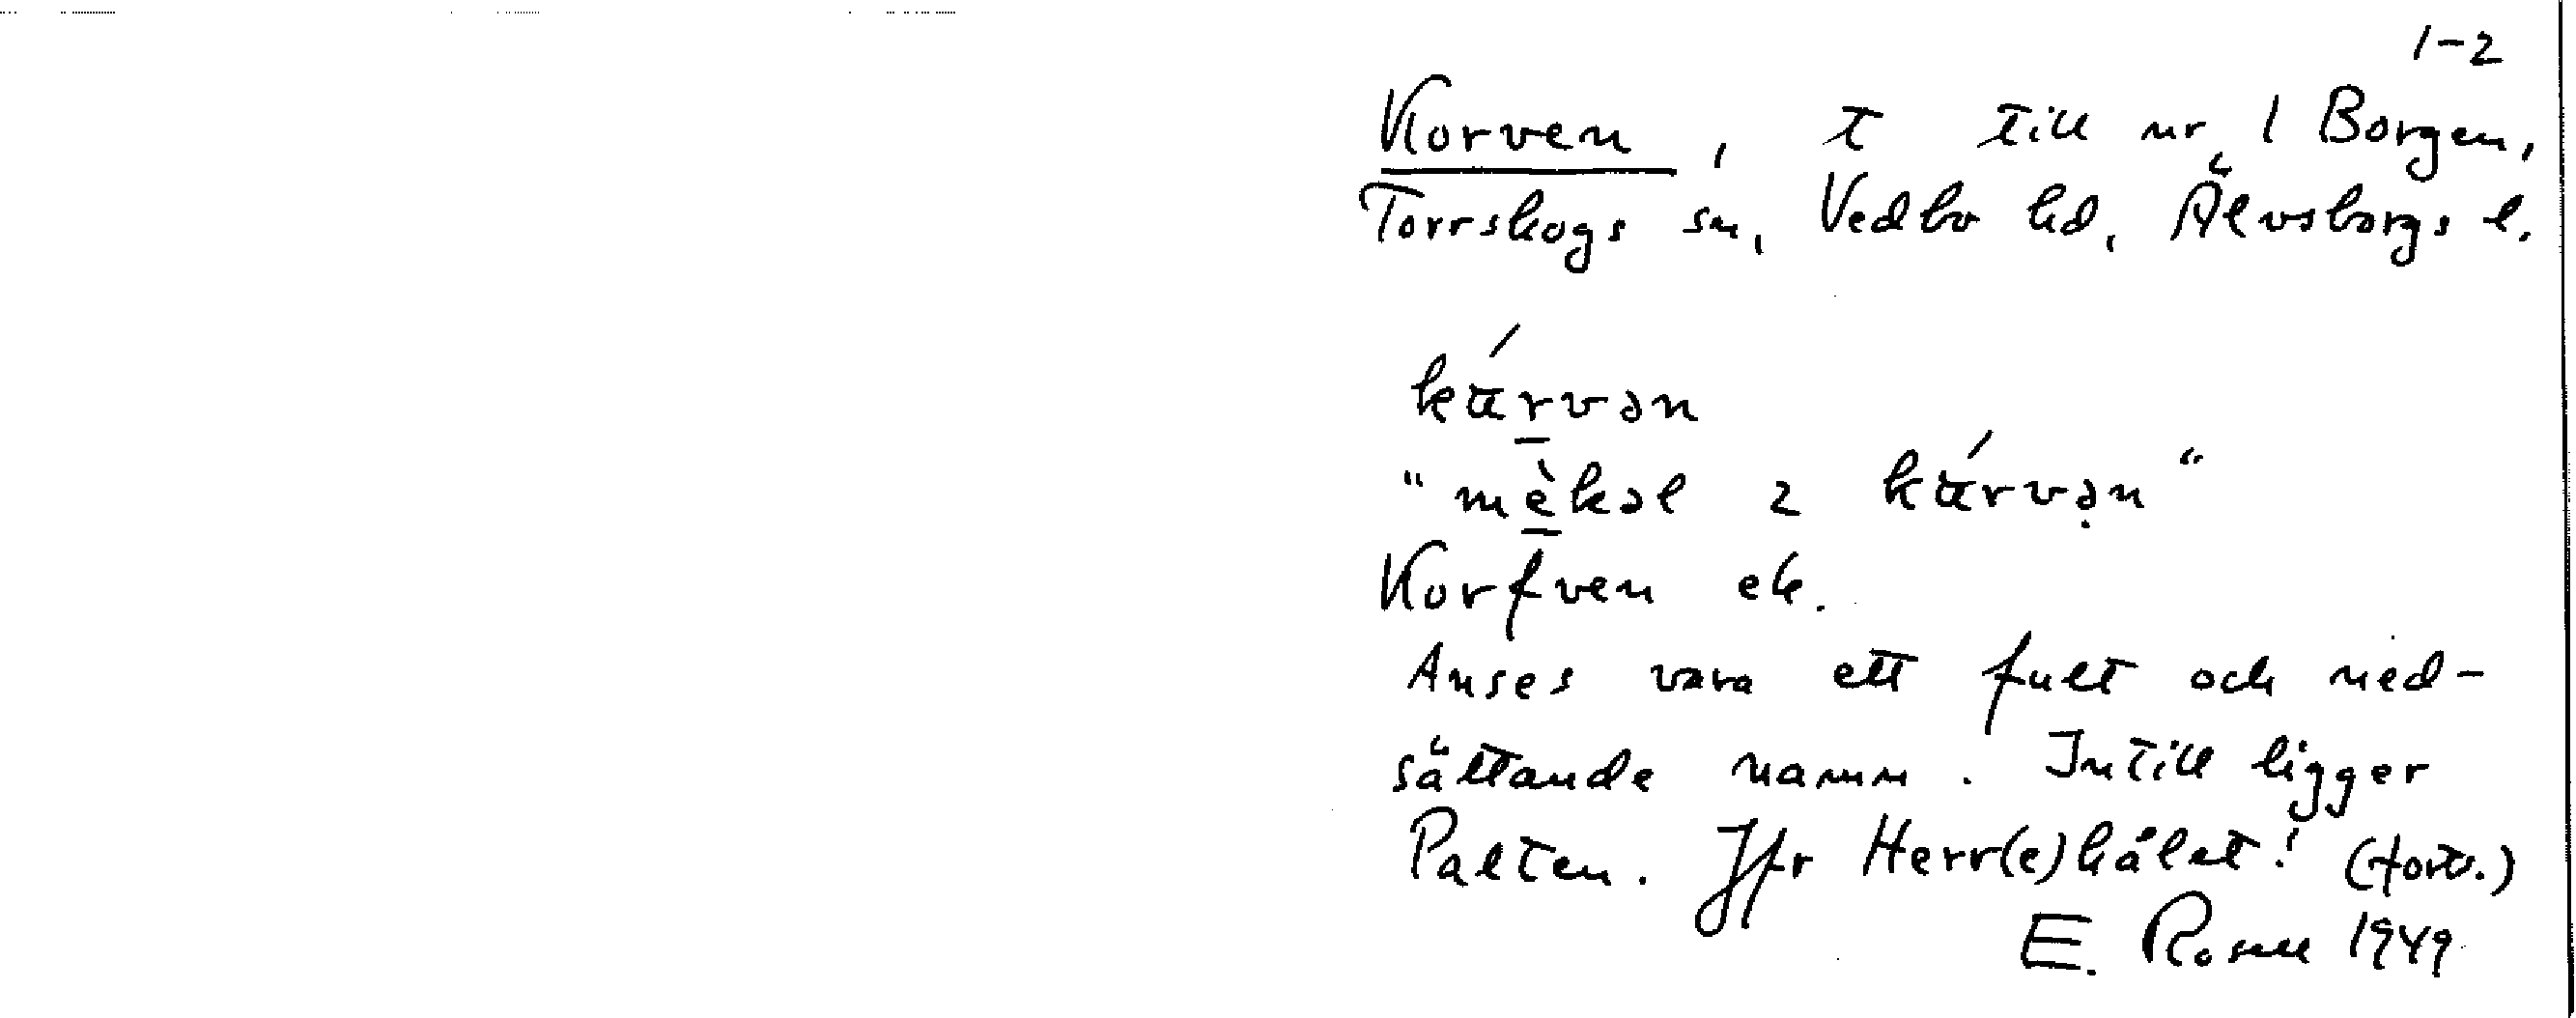 1-2
Korven, t till nr 1 Borgen,
Torrskogs sn, Vedbo hd, Älvsborgs l.
kárvən
"mèkəl ı kárvən"
Korfven ek.
Anses vara ett fult och ned-
sättande namn. Intill ligger
Palten. Jfr Herr(e)hålet! (forts.)
E. Rosell 1949